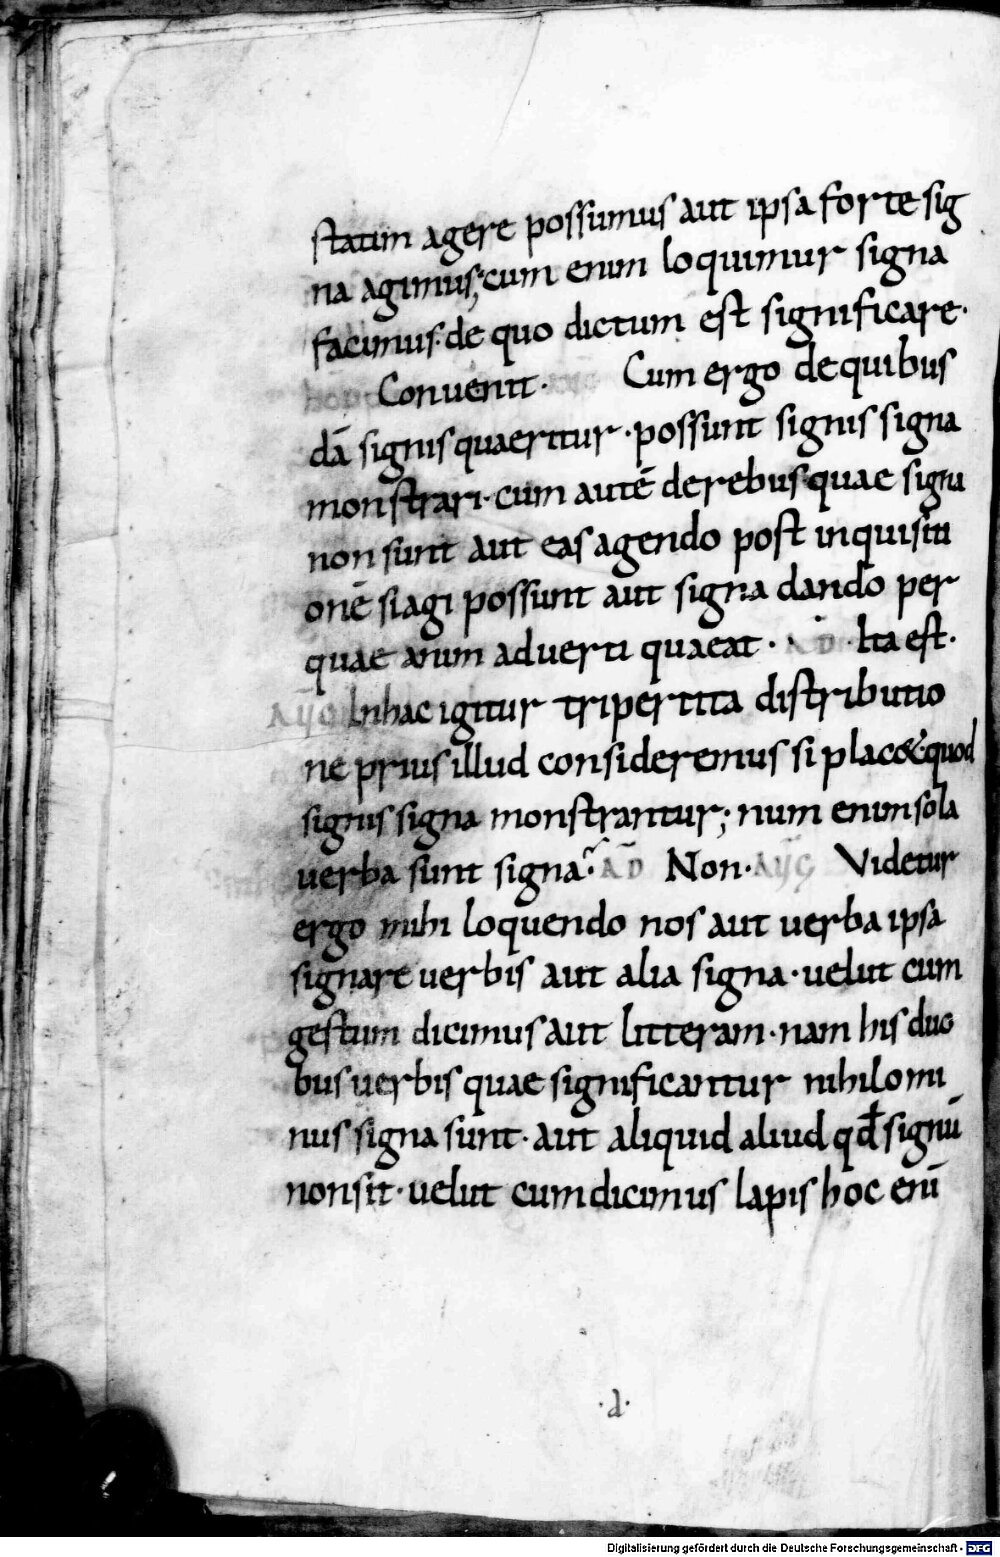 statim agere possumus aut ipsa forte sig
na agimus; cum enim loquimur signa
facimus· de quo dictum est significare·
Conuenit· AUG Cum ergo de quibus
dā signis quaeritur· possunt signis signa
monstrari· cum autē de rebus quae signa
non sunt aut eas agendo post inquisiti
onē si agi possunt aut signa dando per
quae animaduerti queant· AD· Ita est·
AUG In hac igitur tripertita distributio
ne prius illud consideremus si plac& quod
signis signa monstrantur; num enim sola
uerba sunt signa? AD Non· AUG Videtur
ergo mihi loquendo nos aut uerba ipsa
signare uerbis aut alia signa· uelut cum
gestum dicimus aut litteram· nam his duo
bus uerbis quae significantur nihilomi
nus signa sunt· aut aliquid aliud qđ signū
non sit· uelut cum dicimus lapis hoc enī
·d·
Digitalisierung gefördert durch die Deutsche Forschungsgemeinschaft - DFG